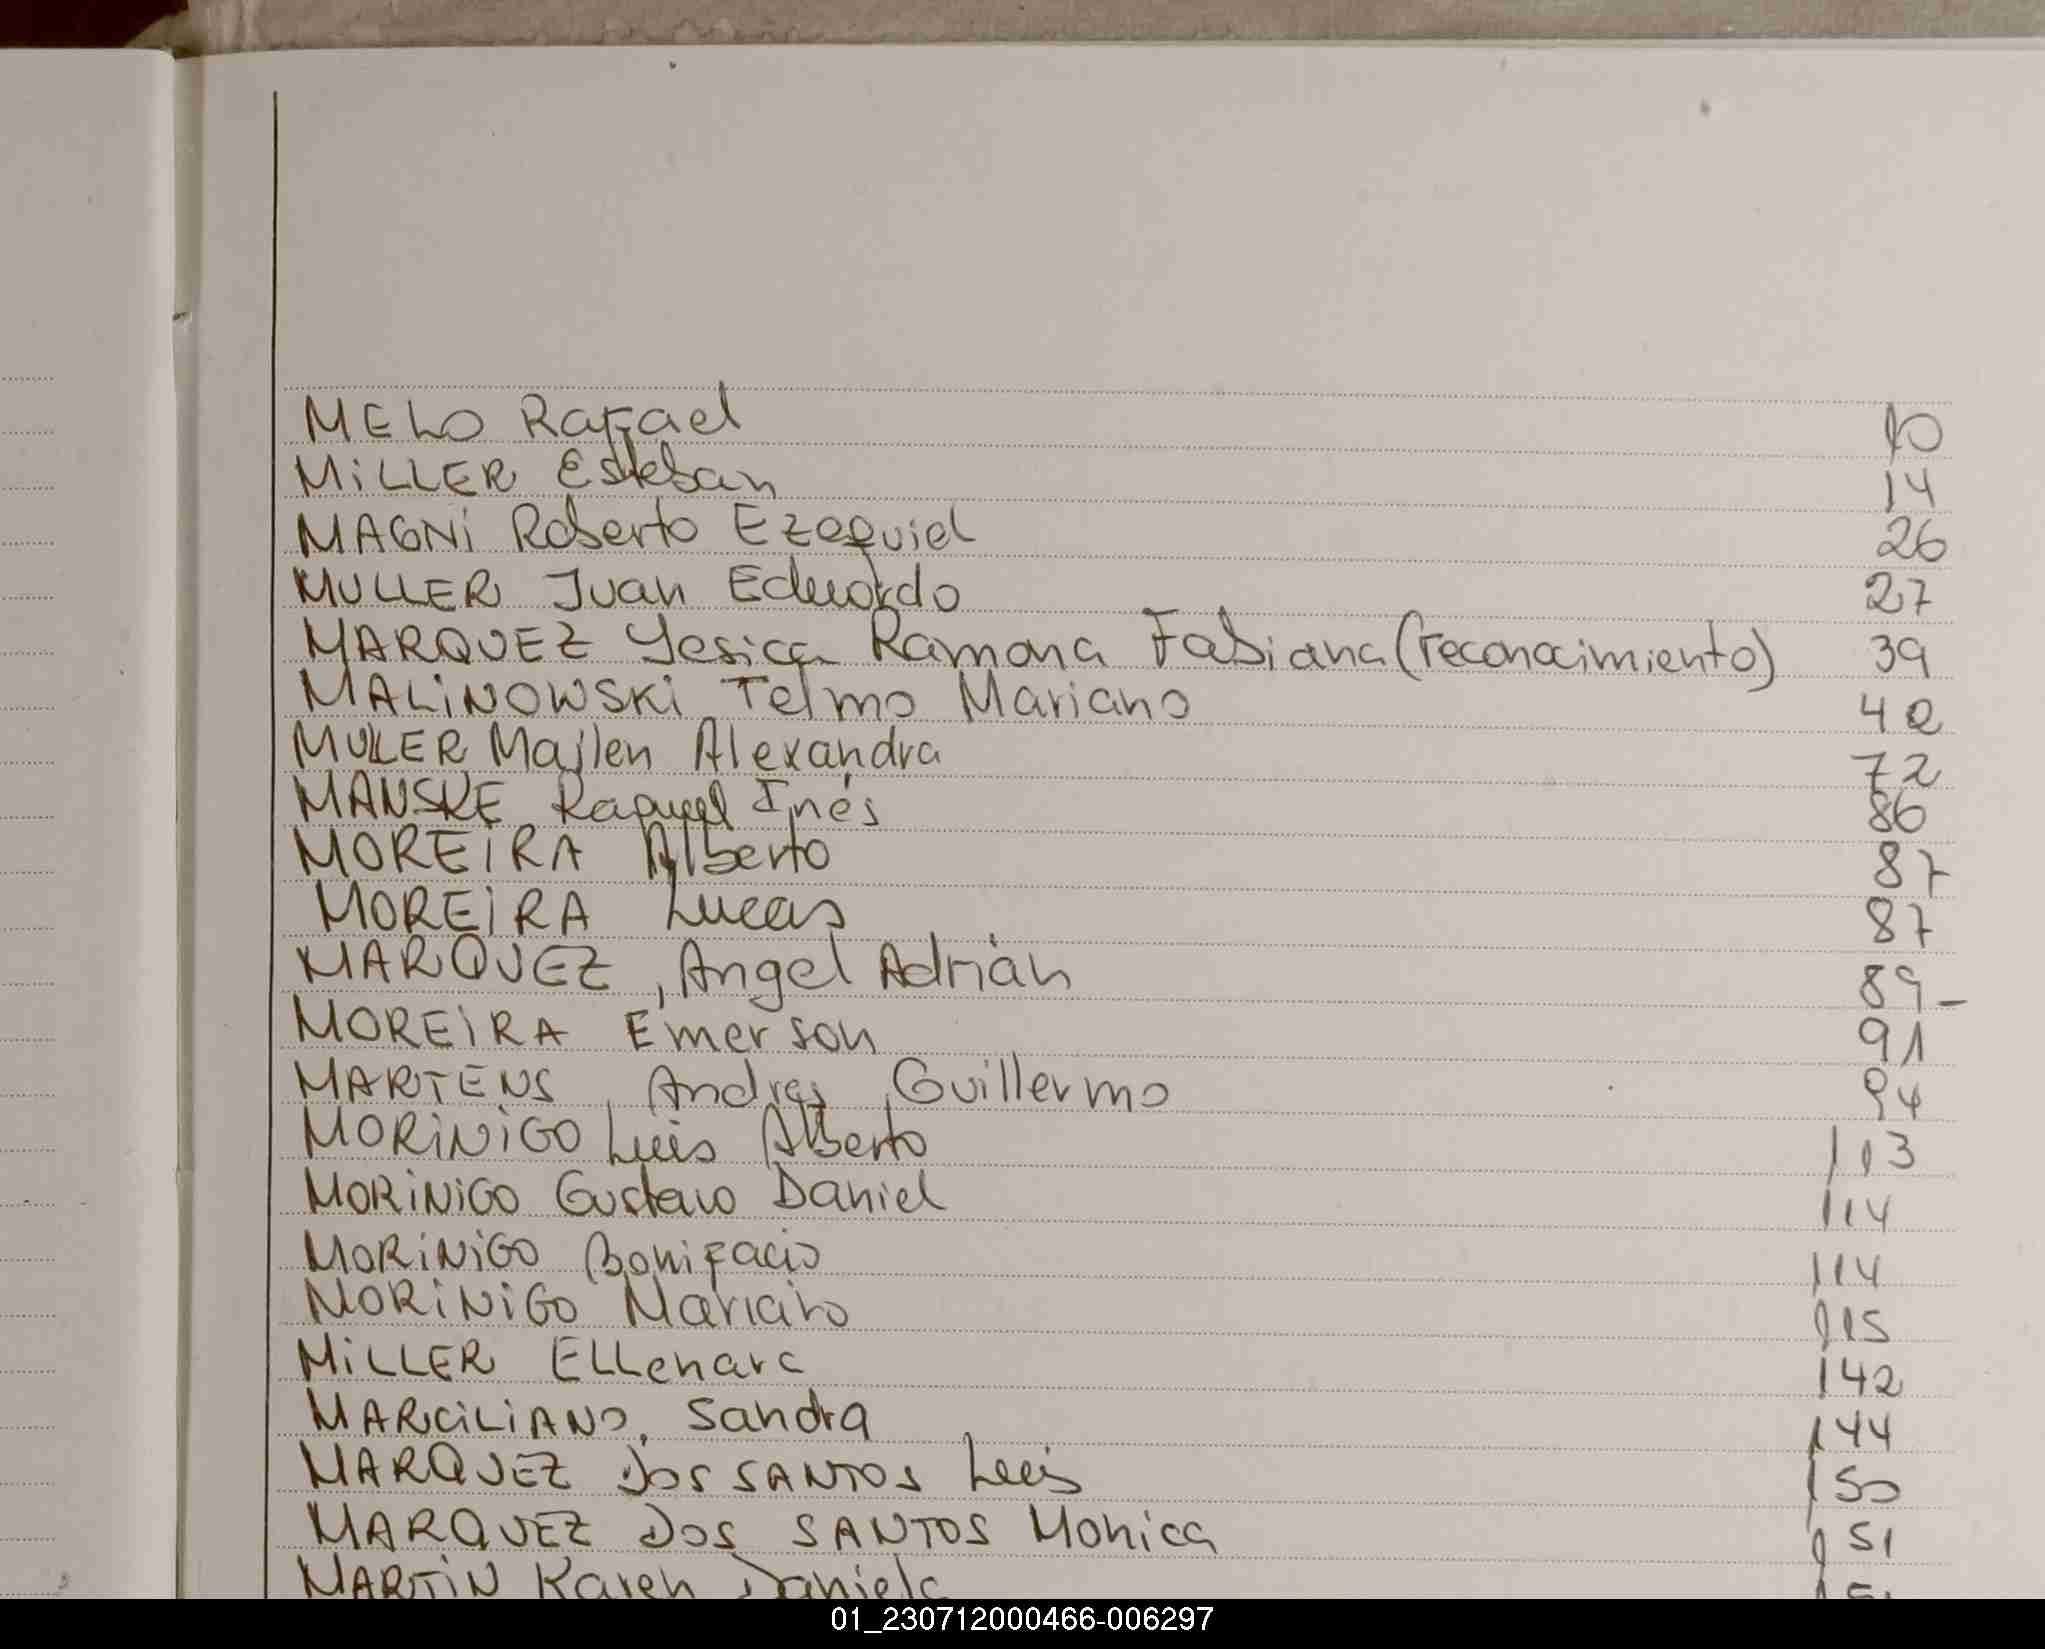 MELO Rafael 10
MiLLER Esteban 14
MAGNi Roberto Ezequiel 26
MULLER Juan Eduardo 27
MARQUEZ Yesica Ramona Fabiana (reconocimiento) 39
MALiNOWSKi Telmo Mariano 40
MULLER Mailen Alexandra 72
MANSKE Raquel Inés 86
MOREiRA Alberto 87
MOREiRA Lucas 87
MARQUEZ, Angel Adrián 89-
MOREiRA Emerson 91
MARTENS, Andres Guillermo 94
MORiNiGO Luis Alberto 113
MORiNiGO Gustavo Daniel 114
MORiNiGO Bonifacio 114
MORiNiGO Mariano 115
MiLLER ELLenara 142
MARCiLiANO, Sandra 144
MARQUEZ DOS SANTOS Luis 150
MARQUEZ DOS SANTOS Monica 151
MARTiN Karen Daniela
01_230712000466-006297